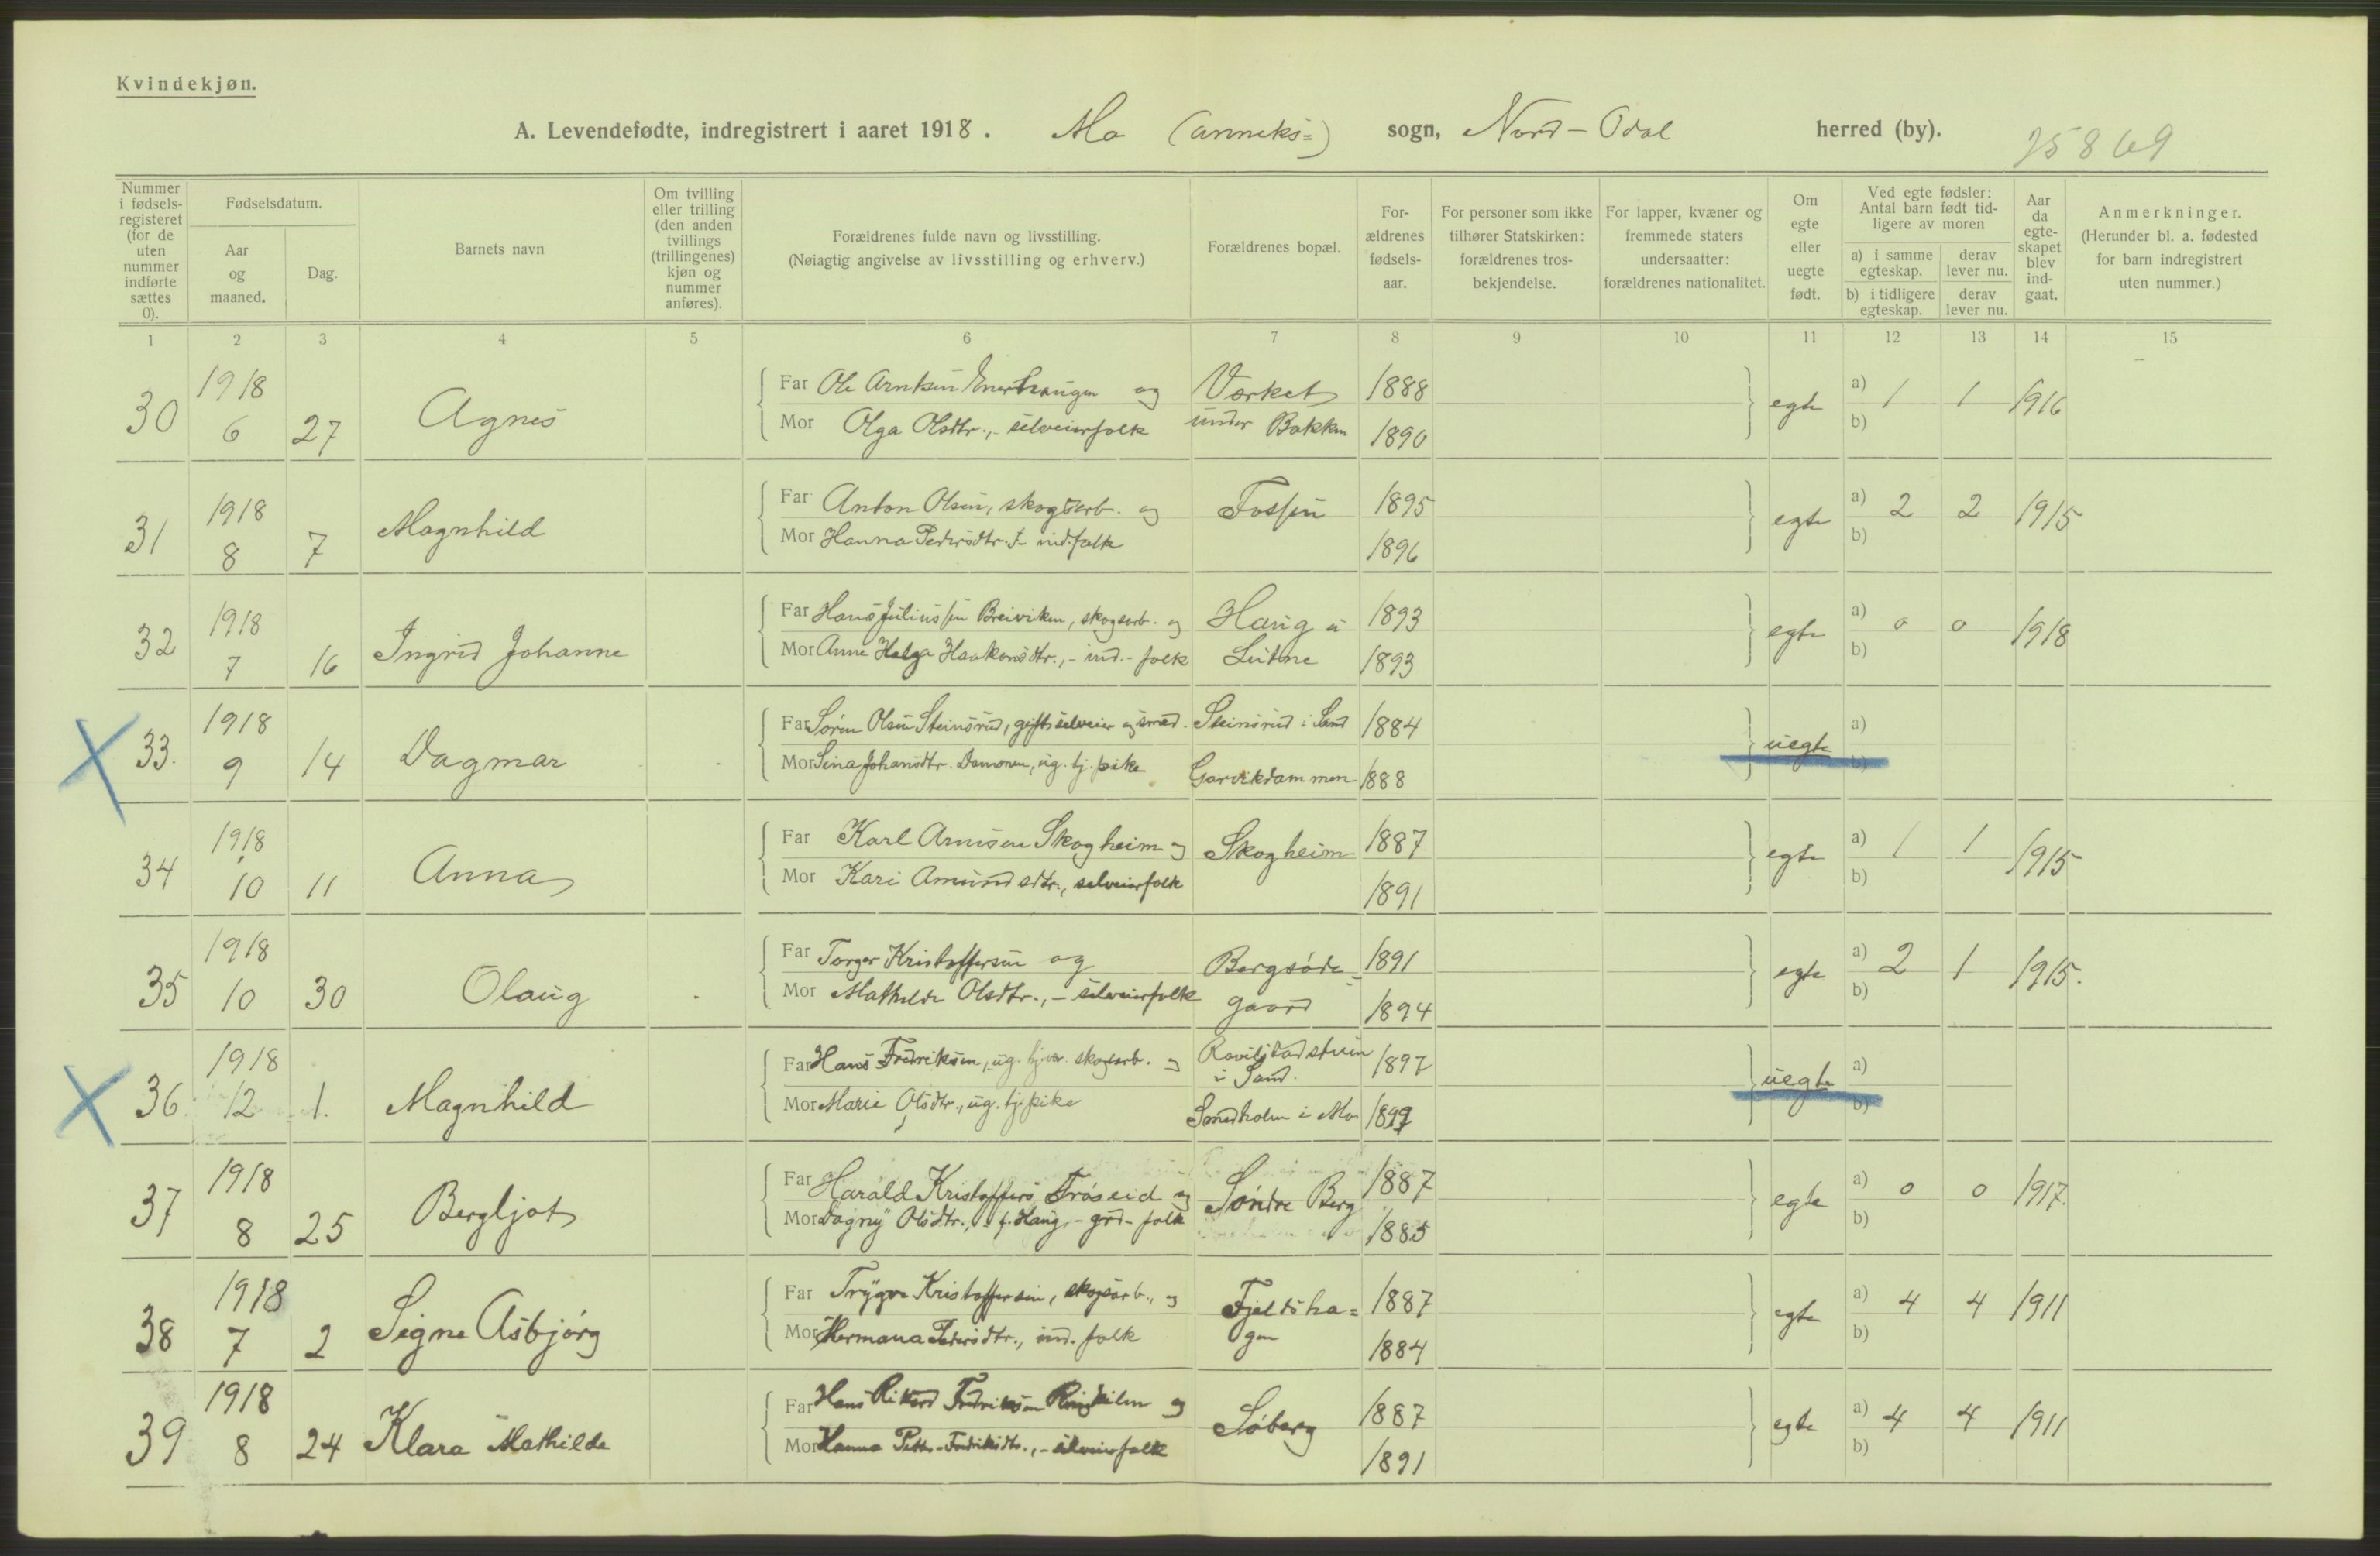 Kvindekjøn.
A. Levendefødte, indregistrert i aaret 1918. Mo (anneks=) sogn, Nord-Odal herred (by).
25869
Nummer i fødsels-registeret (for de uten nummer indførte sættes 0).
Fødselsdatum.
Aar og maaned.
Dag.
Barnets navn
Om tvilling eller trilling (den anden tvillings (trillingenes) kjøn og nummer anføres).
Forældrenes fulde navn og livsstilling.
(Nøiagtig angivelse av livsstilling og erhverv.)
Forældrenes bopæl.
For-ældrenes fødsels-aar.
For personer som ikke tilhører Statskirken: forældrenes tros-bekjendelse.
For lapper, kvæner og fremmede staters undersaatter: forældrenes nationalitet.
Om egte eller uegte født.
Ved egte fødsler: Antal barn født tid-ligere av moren
a) i samme egteskap.
derav lever nu.
b) i tidligere egteskap.
derav lever nu.
Aar da egte-skapet blev ind-gaat.
Anmerkninger.
(Herunder bl. a. fødested for barn indregistrert uten nummer.)
1 2 3 4 5 6 7 8 9 10 11 12 13 14 15
30 1918 6 27 Agnes
Far Ole Arntsen Enerhaugen og Værket 1888
Mor Olga Olsdtr., - selveierfolk under Bakken 1890
egte a) 1 1 1916
b)
31 1918 8 7 Magnhild
Far Anton Olsen, skogsarb. og Fossen 1895
Mor Hanna Pedersdtr. ind.folk 1896
egte a) 2 2 1915
b)
32 1918 7 16 Ingrid Johanne
Far Hans Juliussen Breiviken, skogsarb. og Haug u 1893
Mor Anne Helga Haakonsdtr., - ind. - folk 1893
egte a) 0 0 1918
b)
33. 1918 9 14 Dagmar
Far Søren Olsen Steinsrud, gift selveier og smed. Steinsrud i Sand 1884
Mor Lina Johansdtr. Damonen, ug. tj. pike Garvikdammen 1888
uegte a)
b)
34 1918 10 11 Anna
Far Karl Arnesen Skogheim og Skogheim 1887
Mor Kari Amundsdtr., selveierfolk 1891
egte a) 1 1 1915
b)
35 1918 10 30 Olaug
Far Torger Kristoffersen og Bergsøde= 1891
Mor Mathilde Olsdtr., - selveierfolk gaard 1894
egte a) 2 1 1915.
b)
36. 1918 12 1. Magnhild
Far Hans Fredriksen, ug. skogsarb. og i Sand. 1897
Mor Marie Olsdtr., ug. tj. pike Smedholen i Mo
uegte a)
b)
37 1918 8 25 Bergljot
Far Harald Kristoffers. Frøseid og Søndre Berg 1887
Mor Dagny Olsdtr., f. Haug, - grd - folk 1885
egte a) 0 0 1917.
b)
38 1918 7 2 Signe Asbjørg
Far Trygve Kristoffersen, skogsarb., og Fjeldsha= 1887
Mor Hermana Pedersdtr., ind. folk gen 1884
egte a) 4 4 1911
b)
39 1918 8 24 Klara Mathilde
Far Hans Rikard Fredriksen og Søberg 1887
Mor Hanna Petter-Fredriksdtr., - selveierfolk 1891
egte a) 4 4 1911
b)